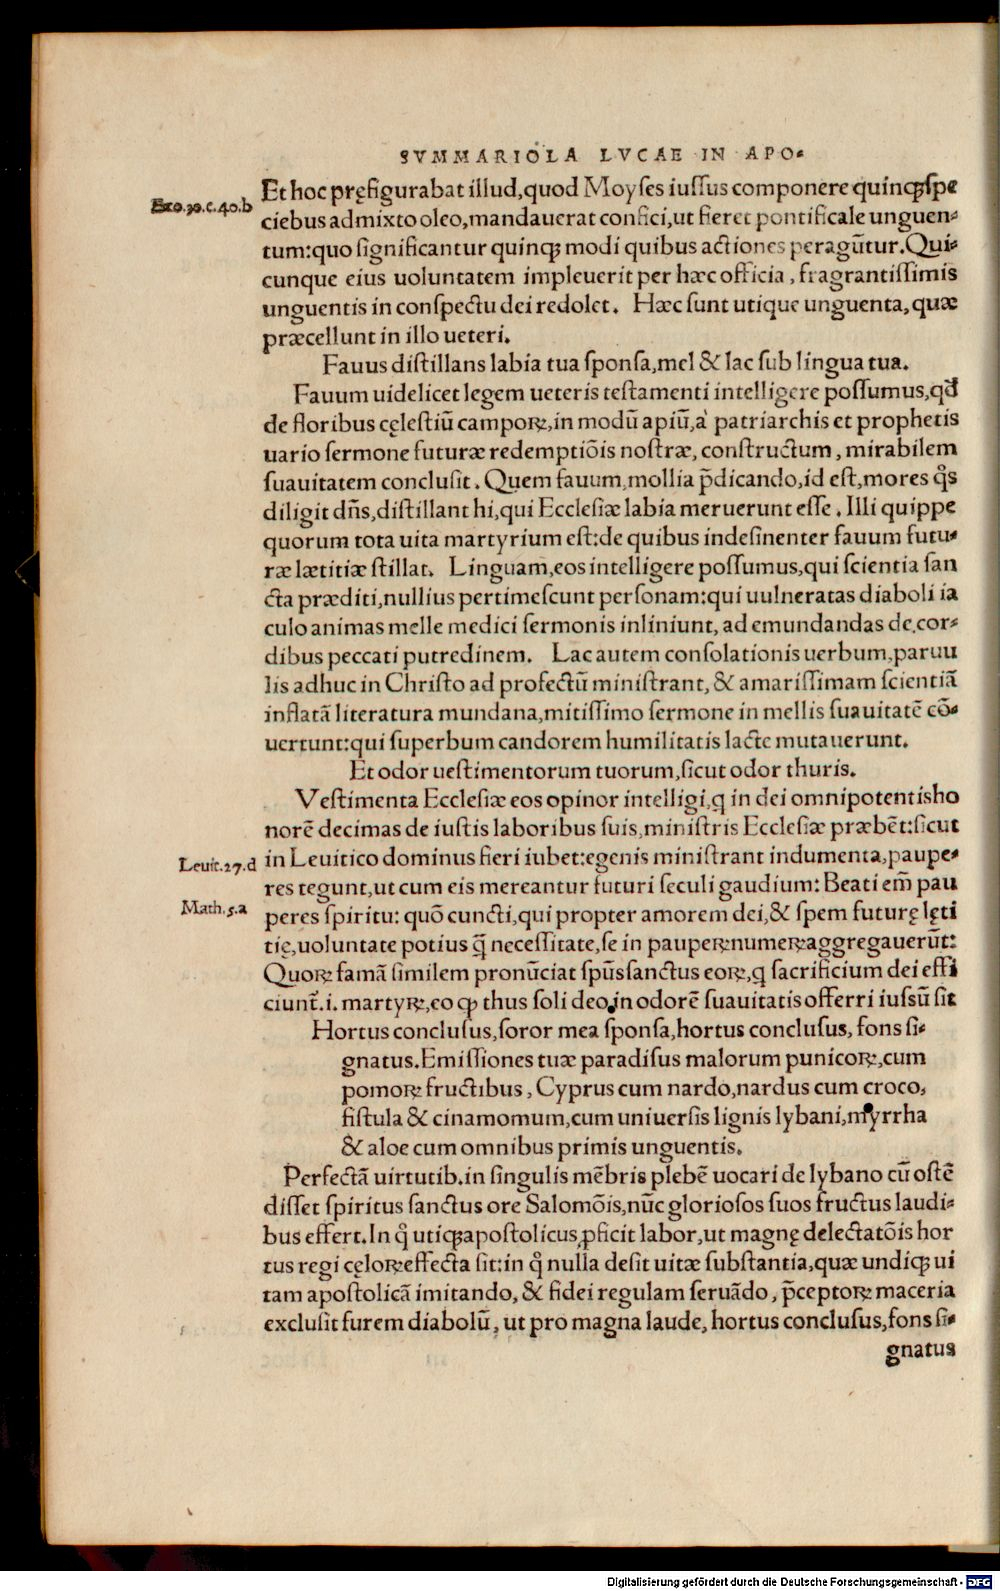 SVMMARIOLA LVCAE IN APO-
Exo.30.c.40.b
Et hoc pręfigurabat illud,quod Moyses iussus componere quinqꝫ spe
ciebus admixto oleo,mandauerat confici,ut fieret pontificale unguen-
tum:quo significantur quinqꝫ modi quibus actiones peragūtur.Qui-
cunque eius uoluntatem impleuerit per hæc officia, fragrantissimis
unguentis in conspectu dei redolet. Hæc sunt utique unguenta, quæ
præcellunt in illo ueteri.
Fauus distillans labia tua sponsa,mel & lac sub lingua tua.
Fauum uidelicet legem ueteris testamenti intelligere possumus,qđ
de floribus cęlestiū campoꝝ,in modū apiū,à patriarchis et prophetis
uario sermone futuræ redemptiōis nostræ, constructum, mirabilem
suauitatem conclusit. Quem fauum,mollia p̄dicando,id est,mores qͦs
diligit dn̄s,distillant hi,qui Ecclesiæ labia meruerunt esse. Illi quippe
quorum tota uita martyrium est:de quibus indesinenter fauum futu-
ræ lætitiæ stillat. Linguam,eos intelligere possumus,qui scientia san
cta præditi,nullius pertimescunt personam:qui uulneratas diaboli ia
culo animas melle medici sermonis inliniunt, ad emundandas de cor-
dibus peccati putredinem. Lac autem consolationis uerbum,paruu
lis adhuc in Christo ad profectū ministrant, & amarissimam scientiā
inflatā literatura mundana,mitissimo sermone in mellis suauitatē cō-
uertunt:qui superbum candorem humilitatis lacte mutauerunt.
Et odor uestimentorum tuorum,sicut odor thuris.
Vestimenta Ecclesiæ eos opinor intelligi,q̇ in dei omnipotentis ho
norē decimas de iustis laboribus suis,ministris Ecclesiæ præbēt:sicut
Leuit.27.d
in Leuitico dominus fieri iubet:egenis ministrant indumenta,paupe-
res tegunt,ut cum eis mereantur futuri seculi gaudium: Beati em̄ pau
Math.5.a
peres spiritu: quō cuncti,qui propter amorem dei,& spem futurę lęti
tię,uoluntate potius q̄ necessitate,se in pauperꝝ numerꝝ aggregauerūt:
Quoꝝ famā similem pronūciat sp̄us sanctus eoꝝ,q̇ sacrificium dei effi
ciunt̄.i. martyꝝ,eo ꝙ thus soli deo in odorē suauitatis offerri iussū sit
Hortus conclusus,soror mea sponsa,hortus conclusus, fons si-
gnatus.Emissiones tuæ paradisus malorum punicoꝝ,cum
pomoꝝ fructibus, Cyprus cum nardo,nardus cum croco,
fistula & cinamomum,cum uniuersis lignis lybani,myrrha
& aloe cum omnibus primis unguentis.
Perfectā uirtutib.in singulis mēbris plebē uocari de lybano cū ostē
disset spiritus sanctus ore Salomōis,nūc gloriosos suos fructus laudi-
bus effert.In q̊ utiqꝫ apostolicus ꝓficit labor,ut magnę delectatōis hor
tus regi cęloꝝ effecta sit:in q̊ nulla desit uitæ substantia,quæ undiqꝫ ui
tam apostolicā imitando, & fidei regulam seruādo, p̄ceptoꝝ maceria
exclusit furem diabolū, ut pro magna laude, hortus conclusus,fons si-
gnatus
Digitalisierung gefördert durch die Deutsche Forschungsgemeinschaft - DFG